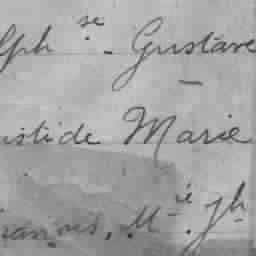 lphse - Gustave
istide Marie
rançois, Mie Jh